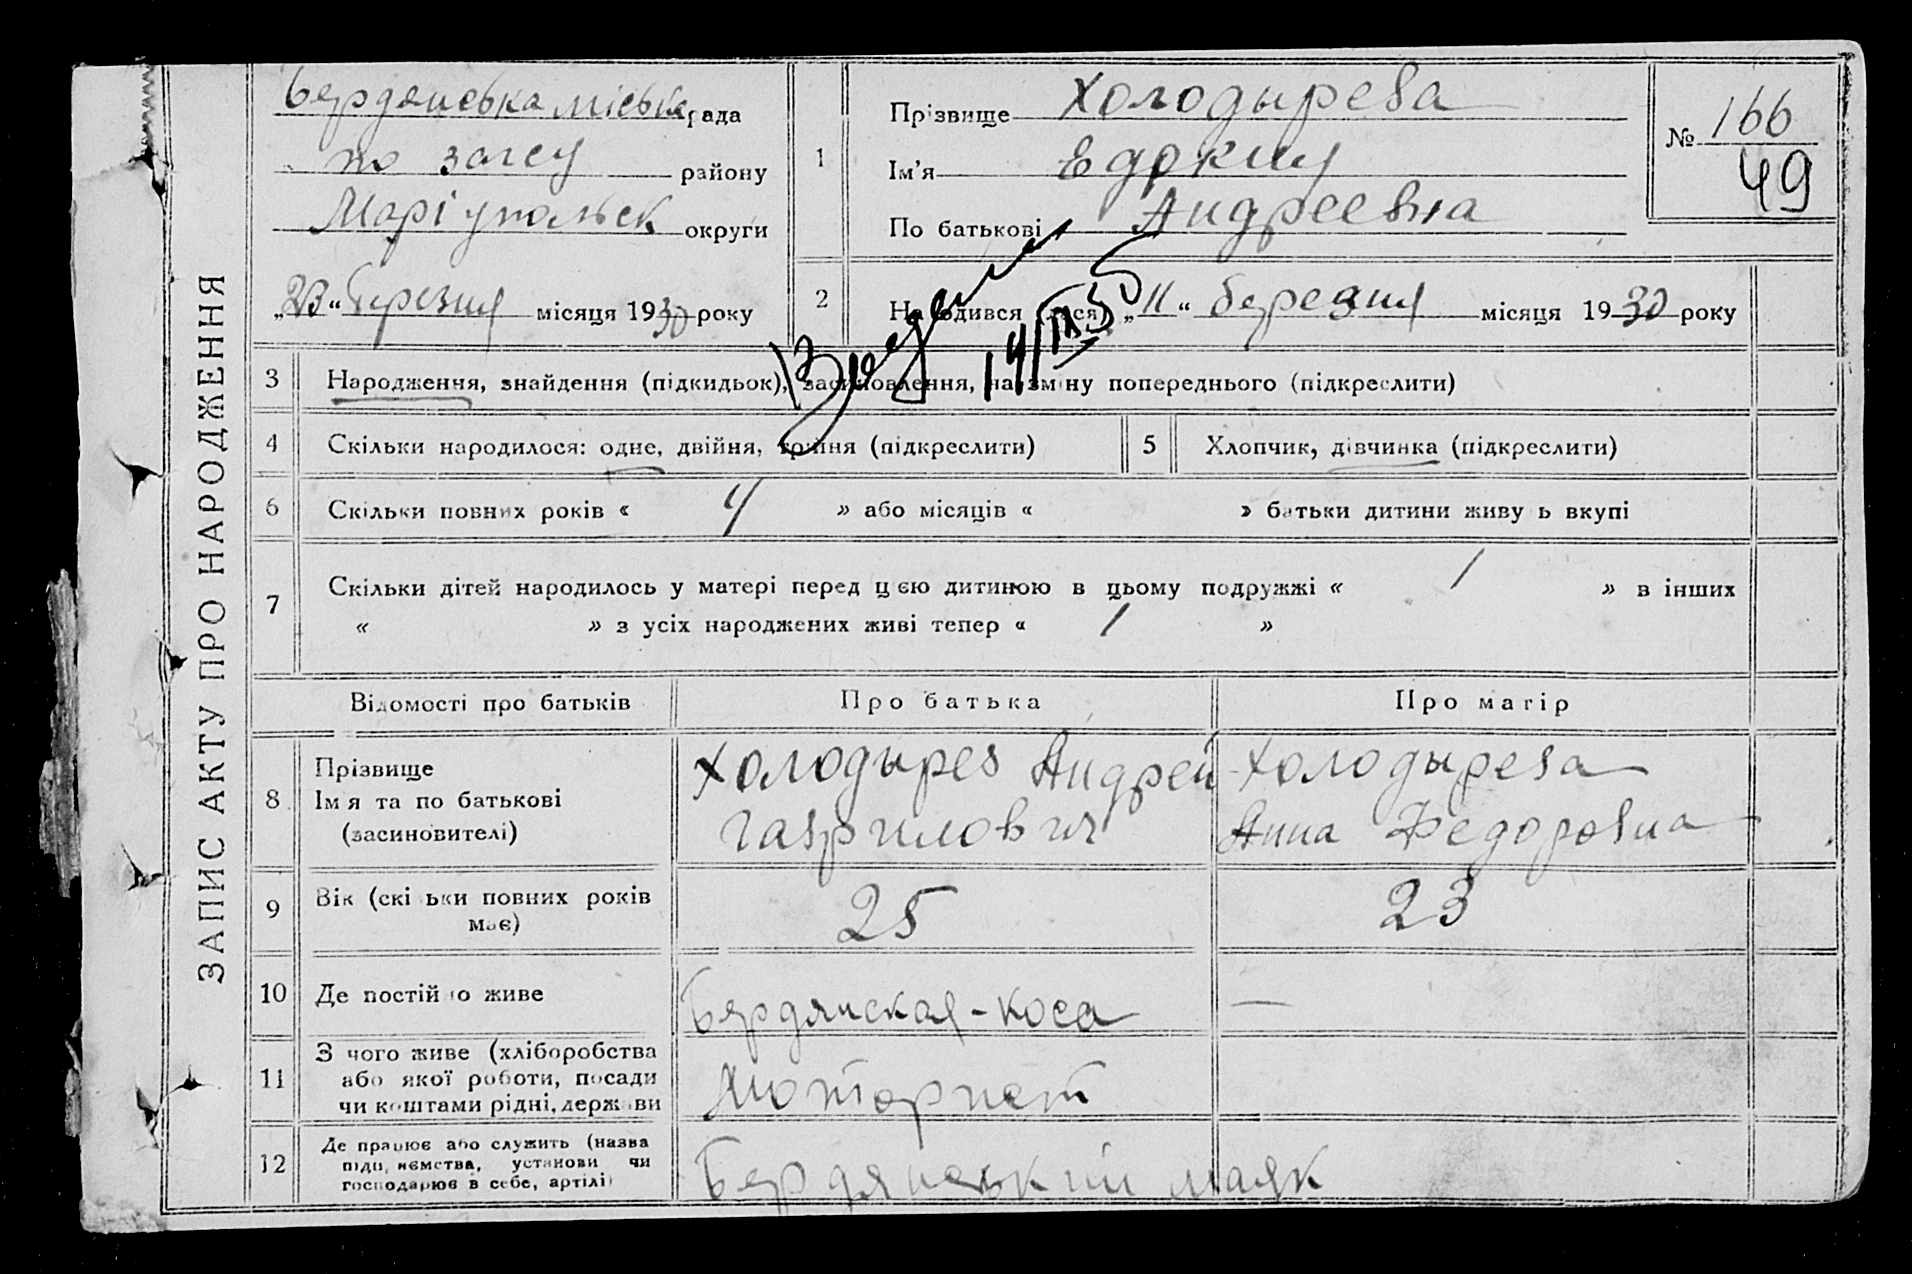 ЗАПИС АКТУ ПРО НАРОДЖЕННЯ
Бердянська міська рада
по загсу району
Маріупольськ округи
„23“ березня місяця 1930 року
1
Прізвище Холодырева
Ім'я
По батькові Андреевна
№ 166
49
2
Народився (лася) „11“ березня місяця 1930 року
3 Народження, знайдення (підкидьок), засиновлення, на зміну попереднього (підкреслити)
4 Скільки народилося: одне, двійня, трійня (підкреслити)
5 Хлопчик, дівчинка (підкреслити)
6 Скільки повних років « 4 » або місяців « » батьки дитини живуть вкупі
7 Скільки дітей народилось у матері перед цією дитиною в цьому подружжі « 1 » в інших
« » з усіх народжених живі тепер « 1 »
Відомості про батьків Про батька Про матір
8 Прізвище
Ім'я та по батькові
(засиновителі)
Холодырев Андрей
Гаврилович
Холодырева
Анна Федоровна
9 Вік (скільки повних років
має)
25
23
10 Де постійно живе Бердянская-коса —
11 З чого живе (хліборобства
або якої роботи, посади
чи коштами рідні, держави
Моторист
12 Де працює або служить (назва
підприємства, установи чи
господарює в себе, артілі)
Бердянський маяк